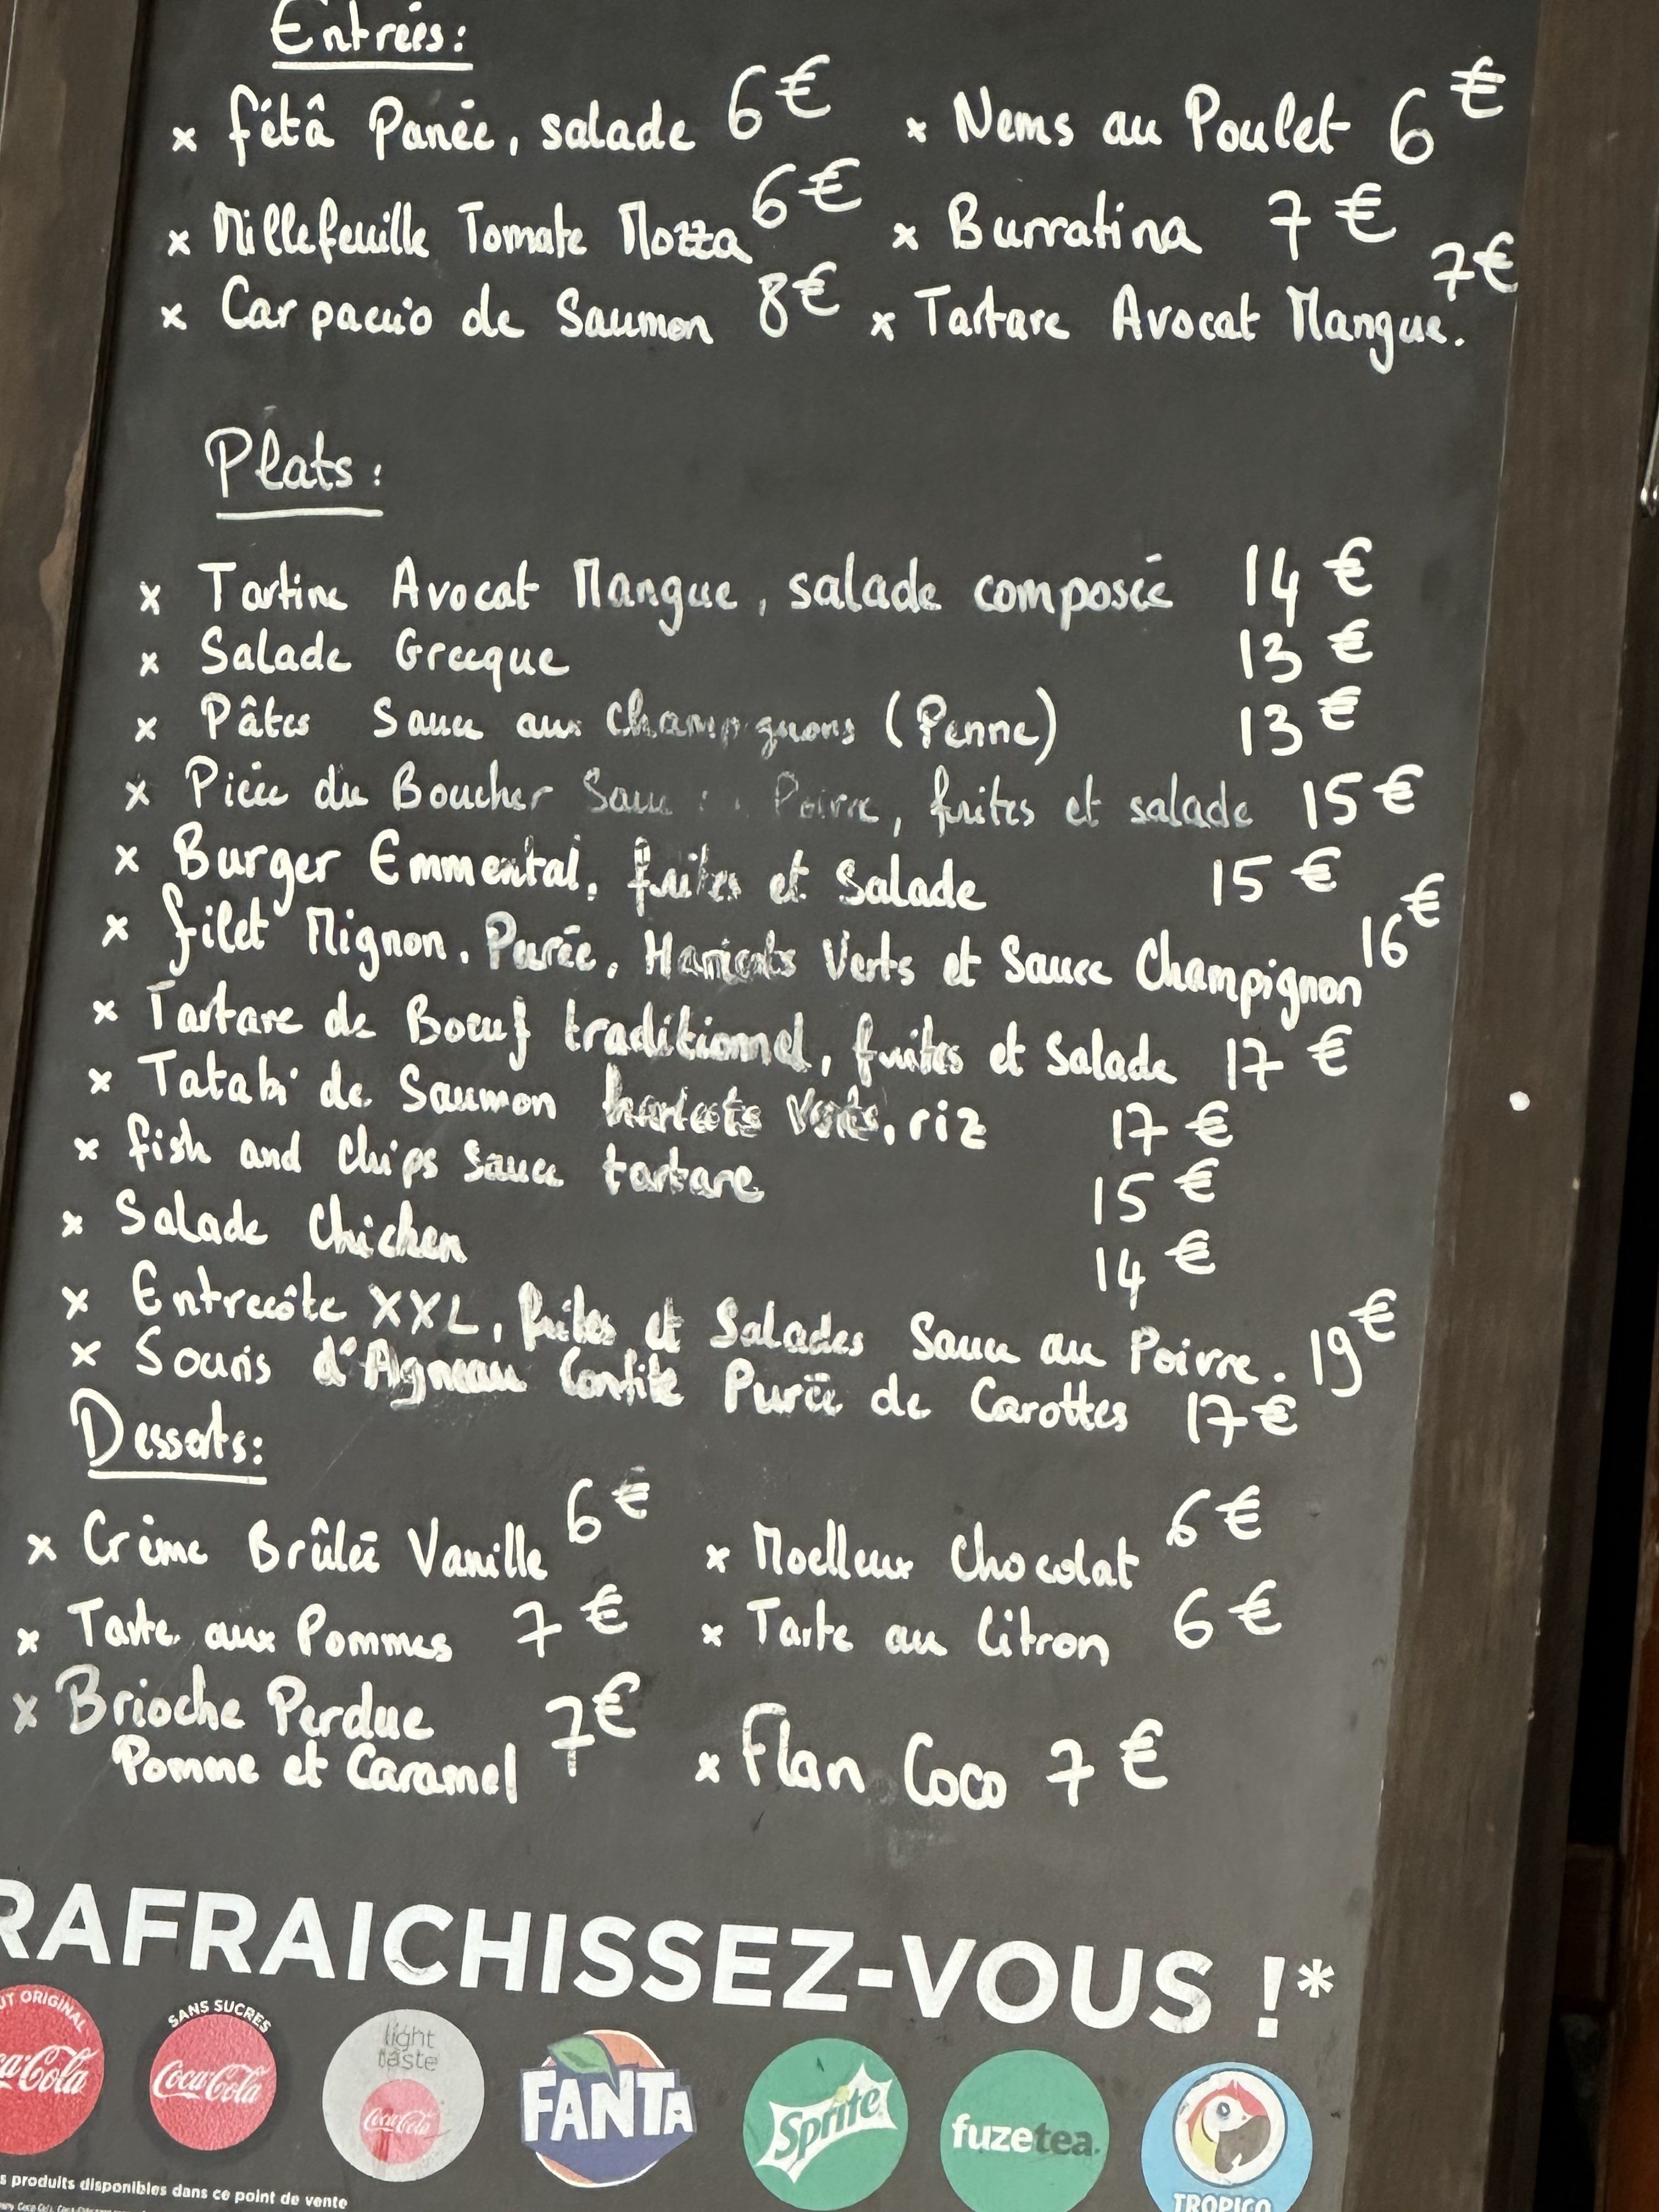 Entrées:
x fétâ Panée, salade 6€ x Nems au Poulet 6€
x Millefeuille Tomate Mozza 6€ x Burratina 7€
x Carpaccio de Saumon 8€ x Tartare Avocat Mangue. 7€
Plats:
x Tartine Avocat Mangue, salade composée 14€
x Salade Grecque 13€
x Pâtes Sauce aux Champignons (Penne) 13€
x Pièce du Boucher Sauce Poivre, frites et salade 15€
x Burger Emmental, frites et Salade 15€
x filet Mignon, Purée, Haricots Verts et Sauce Champignon 16€
x Tartare de Boeuf traditionnel, frites et Salade 17€
x Tataki de Saumon haricots Verts, riz 17€
x fish and Chips Sauce tartare 15€
x Salade Chicken 14€
x Entrecôte XXL, frites et Salades Sauce au Poivre. 19€
x Souris d'Agneau Confite Purée de Carottes 17€
Desserts:
x Crème Brûlée Vanille 6€ x Moelleux Chocolat 6€
x Tarte aux Pommes 7€ x Tarte au Citron 6€
x Brioche Perdue
Pomme et Caramel 7€ x Flan Coco 7€
RAFRAICHISSEZ-VOUS !*
ORIGINAL SANS SUCRES
Coca-Cola Coca-Cola light taste Coca-Cola FANTA Sprite fuzetea TROPICO
produits disponibles dans ce point de vente